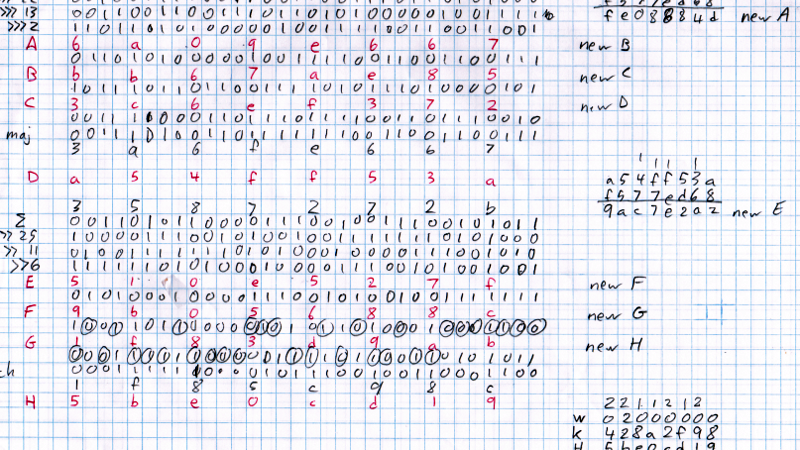 >>> 13 0 0 1 1 0 0 1 1 0 0 1 1 1 0 1 1 0 1 0 1 0 0 0 0 0 1 0 0 1 1 1 1
>>> 2 1 1 0 1 1 0 1 0 1 0 0 0 0 0 1 0 0 1 1 1 1 0 0 1 1 0 0 1 1 0 0 1
A 6 a 0 9 e 6 6 7
0 1 1 0 1 0 1 0 0 0 0 0 1 0 0 1 1 1 1 0 0 1 1 0 0 1 1 0 0 1 1 1
B b b 6 7 a e 8 5
1 0 1 1 1 0 1 1 0 1 1 0 0 1 1 1 1 0 1 0 1 1 1 0 1 0 0 0 0 1 0 1
C 3 c 6 e f 3 7 2
0 0 1 1 1 1 0 0 0 1 1 0 1 1 1 0 1 1 1 1 0 0 1 1 0 1 1 1 0 0 1 0
maj 0 0 1 1 1 0 1 0 0 1 1 0 1 1 1 1 1 1 1 0 0 1 1 0 0 1 1 0 0 1 1 1
3 a 6 f e 6 6 7
D a 5 4 f f 5 3 a
3 5 8 7 2 7 2 b
Σ 0 0 1 1 0 1 0 1 1 0 0 0 0 1 1 1 0 0 1 0 0 1 1 1 0 0 1 0 1 0 1 1
>> 25 1 0 0 0 0 1 1 1 0 0 1 0 1 0 0 1 0 0 1 1 1 1 1 1 1 0 1 0 1 0 0 0
>> 11 0 1 0 0 1 1 1 1 1 1 1 0 1 0 1 0 0 0 1 0 0 0 0 1 1 1 0 0 1 0 1 0
>>6 1 1 1 1 1 1 0 1 0 1 0 0 0 1 0 0 0 0 1 1 1 0 0 1 0 1 0 0 1 0 0 1
E 5 1 0 e 5 2 7 f
0 1 0 1 0 0 0 1 0 0 0 0 1 1 1 0 0 1 0 1 0 0 1 0 0 1 1 1 1 1 1 1
F 9 b 0 5 6 8 8 c
1 0 0 1 1 0 1 1 0 0 0 0 0 1 0 1 0 1 1 0 1 0 0 0 1 0 0 0 1 1 0 0
G 1 f 8 3 d 9 a b
0 0 0 1 1 1 1 1 1 0 0 0 0 0 1 1 1 1 0 1 1 0 0 1 1 0 1 0 1 0 1 1
0 0 0 1 1 1 1 1 1 0 0 0 0 1 0 1 1 1 0 0 1 0 0 1 1 0 0 0 1 1 0 0
1 f 8 5 c 9 8 c
H 5 b e 0 c d 1 9
f c 0 8 8 8 4 d new A
new B
new C
new D
1 1 1 1
a 5 4 f f 5 3 a
f 5 7 7 e d 6 8
9 a c 7 e 2 a 2 new E
new F
new G
new H
2 2 1 1 2 1 2
w 0 2 0 0 0 0 0 0
k 4 2 8 a 2 f 9 8